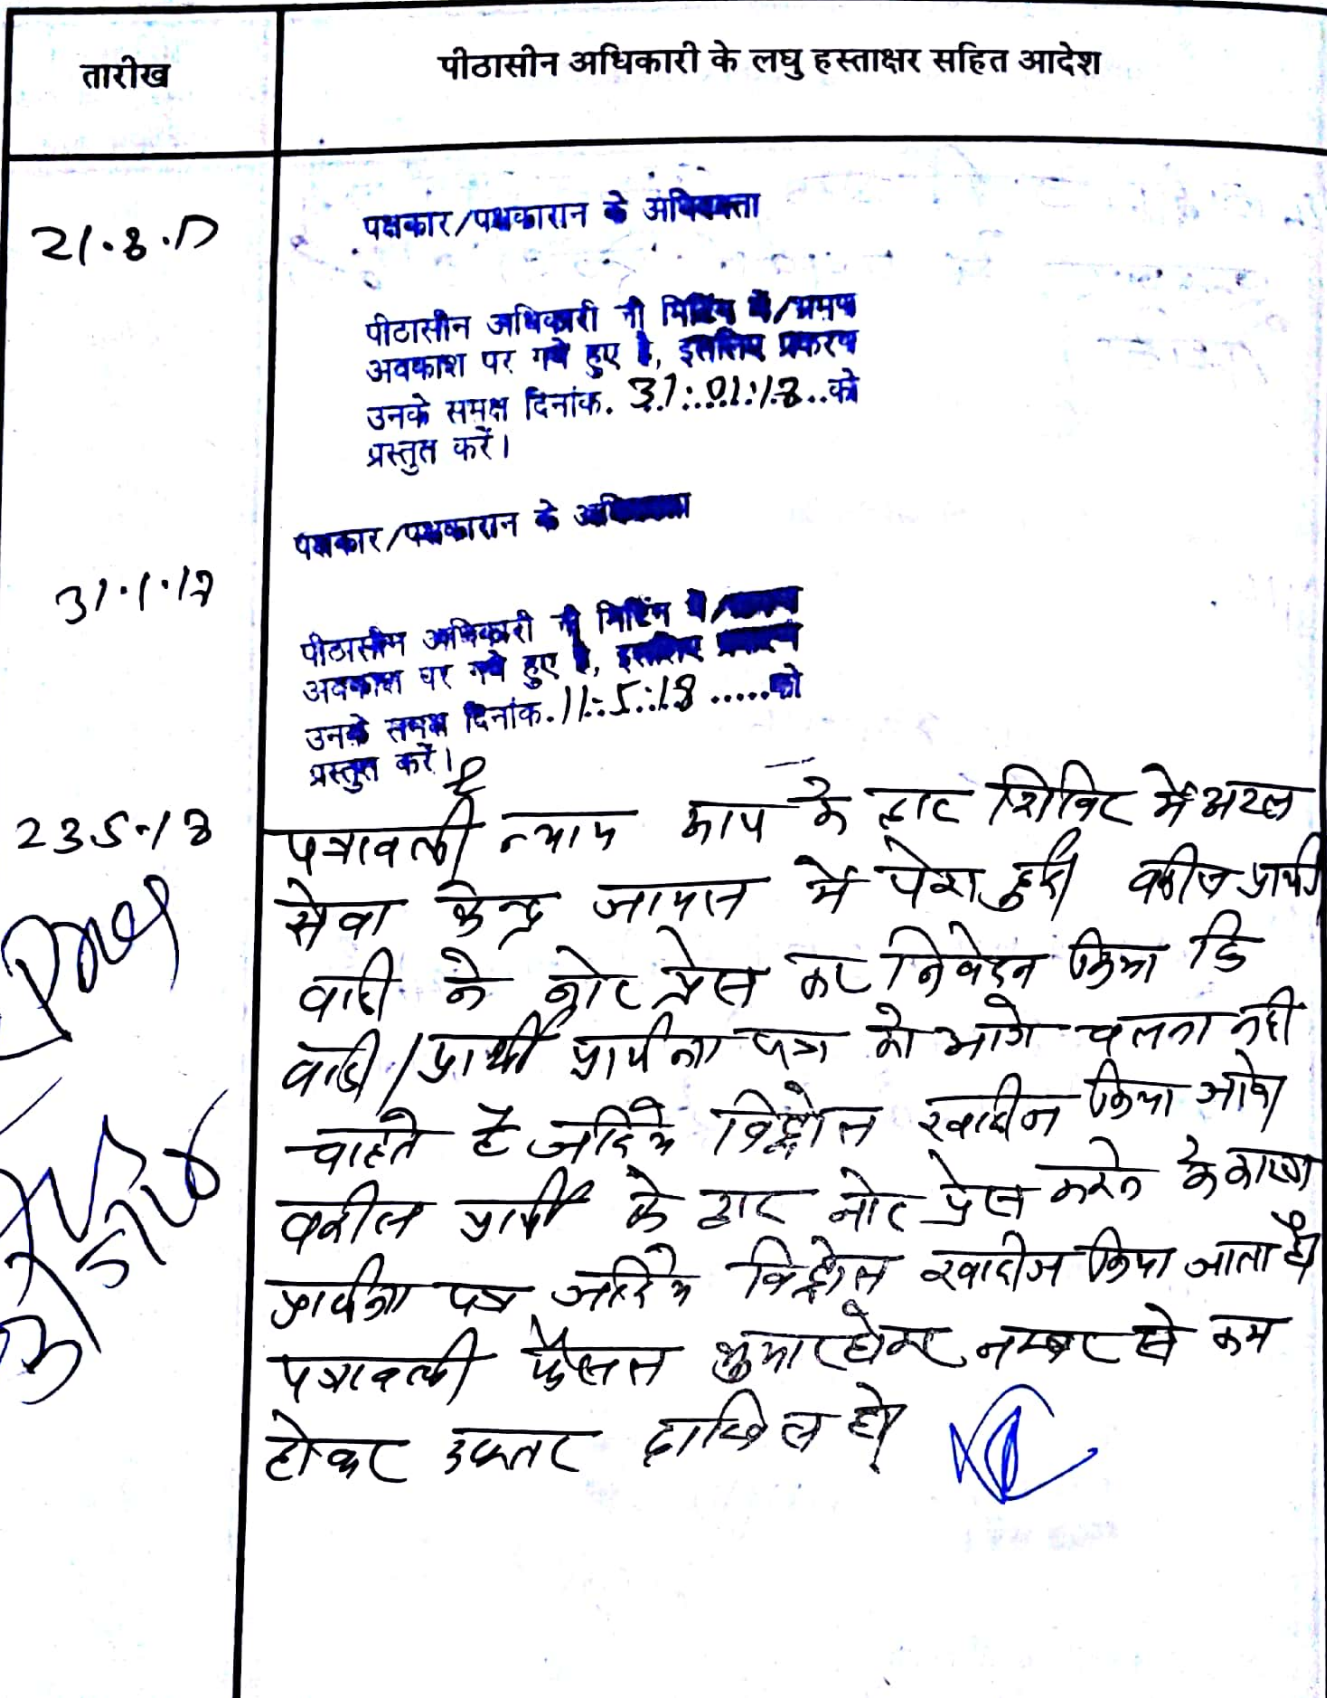 तारीख
पीठासीन अधिकारी के लघु हस्ताक्षर सहित आदेश
21.8.17
पक्षकार/पक्षकारान के अभिवक्ता
पीठासीन अधिकारी जी मिटिंग में/भ्रमण
अवकाश पर गये हुए है, इसलिए प्रकरण
उनके समक्ष दिनांक. 31:.01:18..को
प्रस्तुत करें।
पक्षकार/पक्षकारान के
31.1.18
पीठासीन अधिकारी जी मिटिंग में/
अवकाश पर गये हुए है, इसलिए
उनके समक्ष दिनांक.11:.5.:18.....को
प्रस्तुत करें।
23.5.18
पत्रावली न्याय के द्वार शिविर में अटल
सेवा केन्द्र में पेश हुई वकील प्रार्थी
वादी ने नोट प्रेस कर निवेदन किया कि
वादी/प्रार्थी प्रार्थना पत्र को आगे चलना नही
चाहते है जरिये विड्रोल खारीज किया जावे
वकील प्रार्थी के द्वारा नोट प्रेस करने के कारण
प्रार्थना पत्र जरिये विड्रोल खारीज किया जाता है
पत्रावली फैसल शुमार होकर नम्बर से कम
होकर दाखिल हो